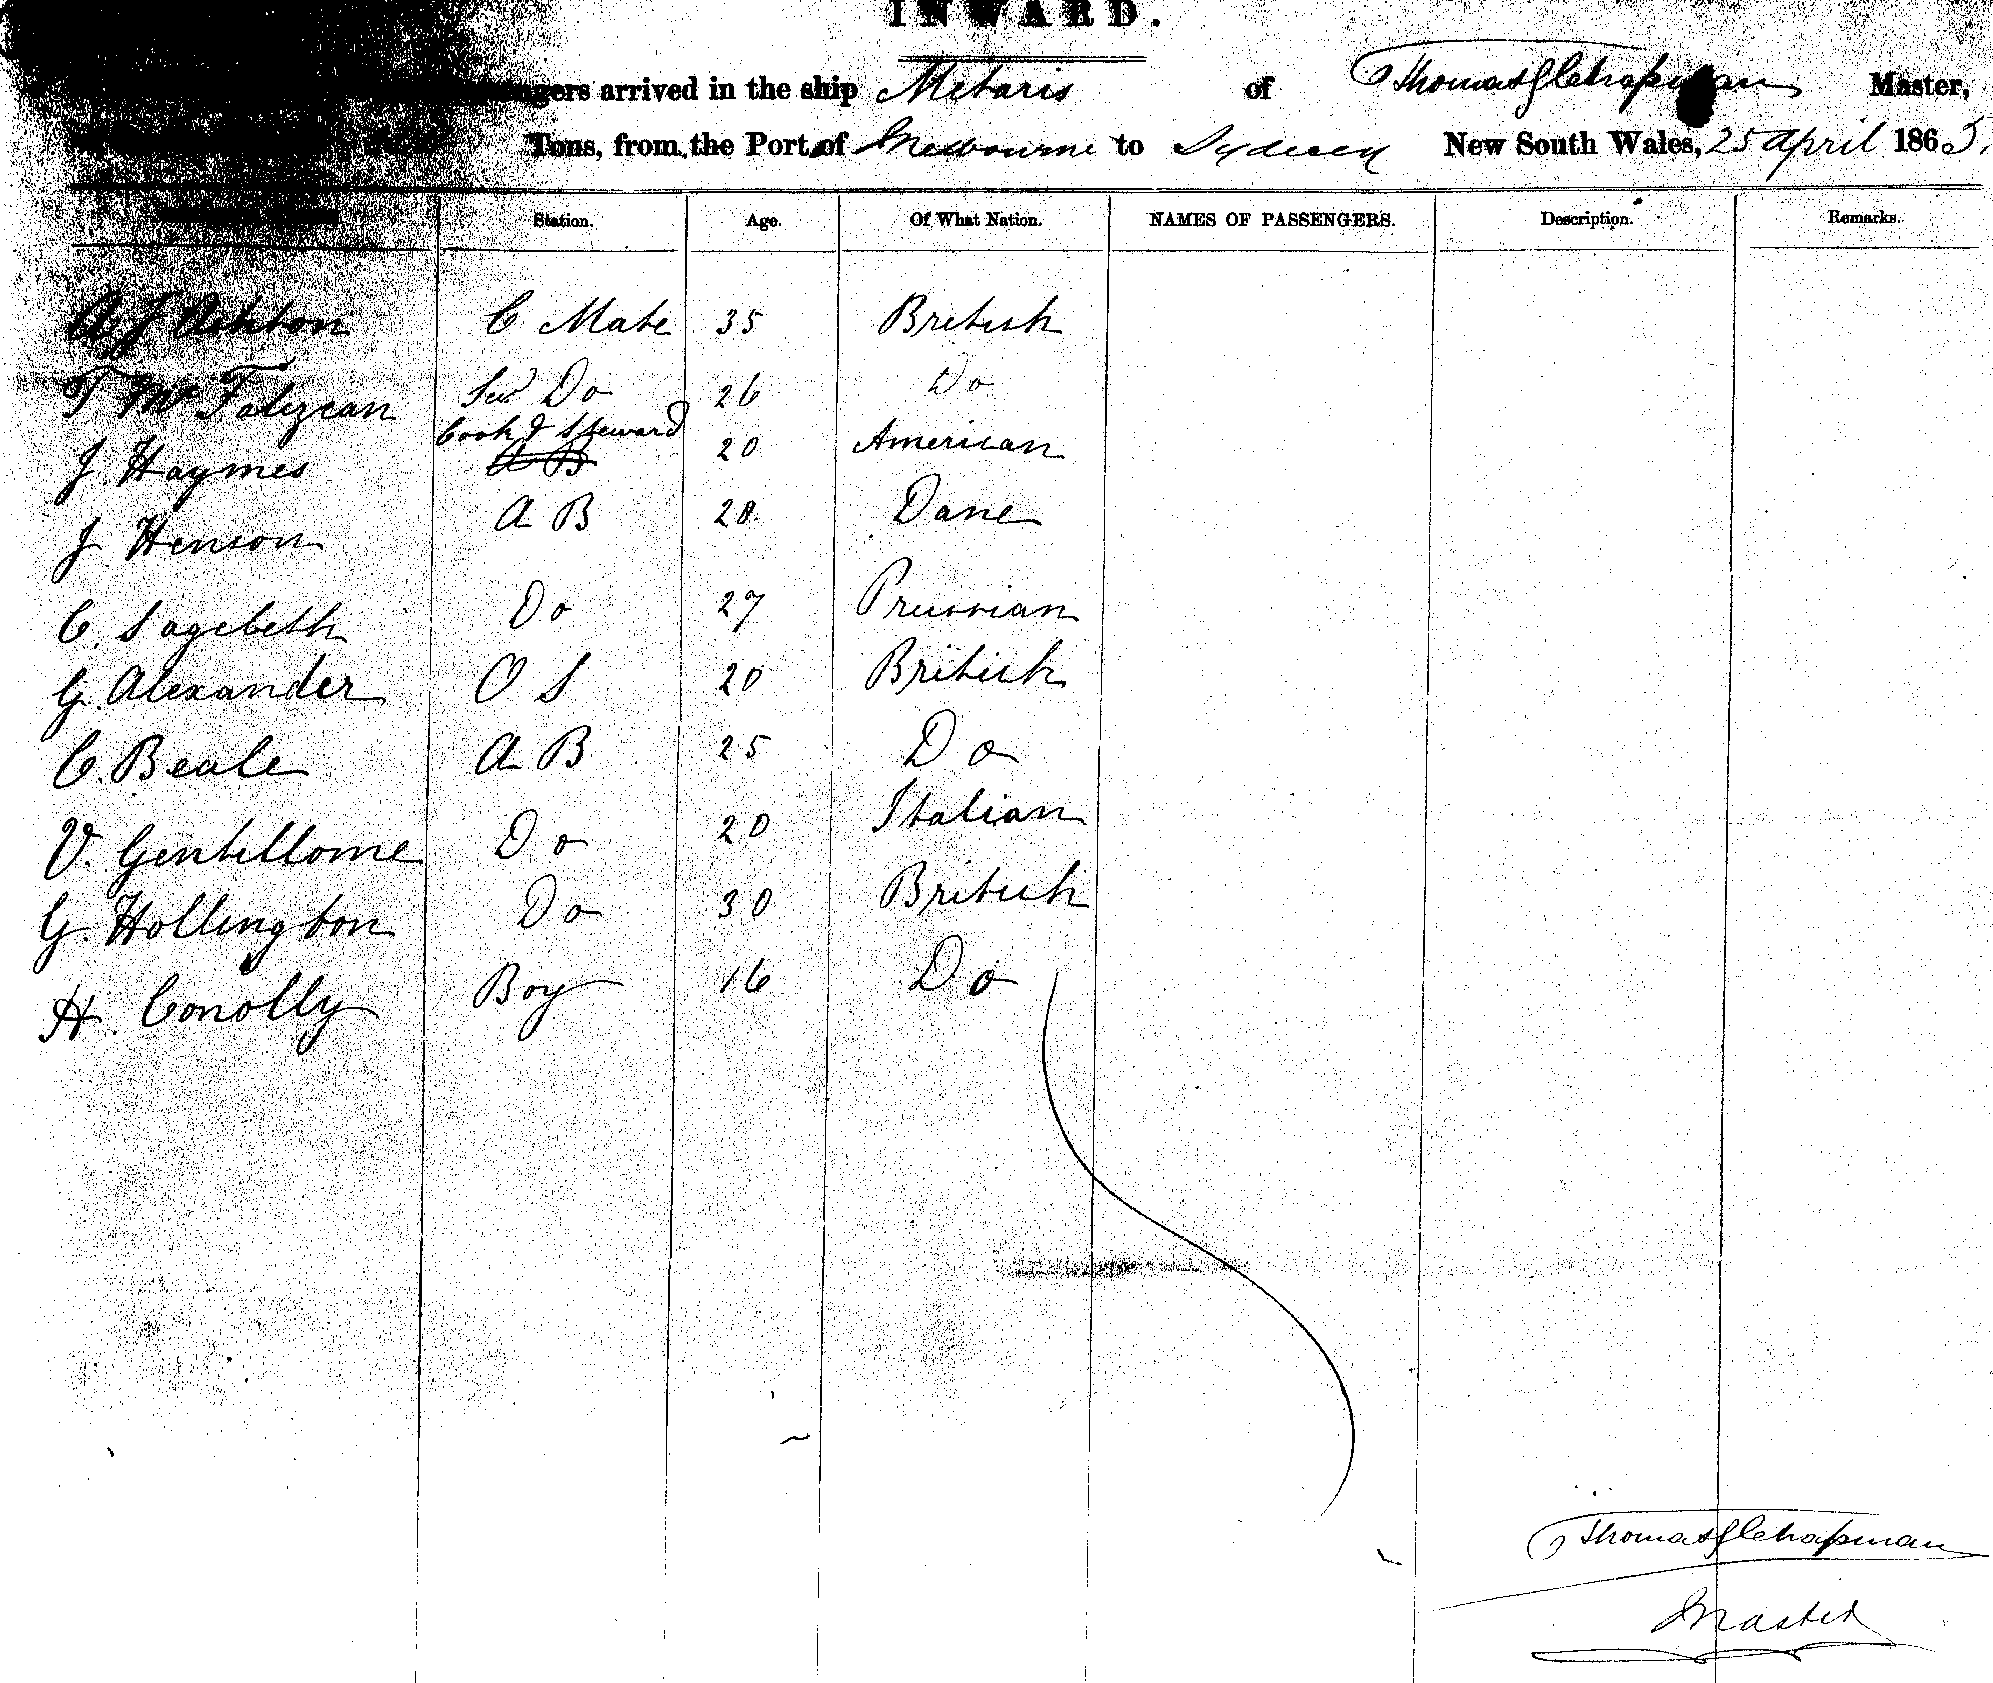 INWARD.
ngers arrived in the ship Metaris of Thomas J Chapman Master,
Tons, from the Port of Melbourne to Sydney New South Wales, 25 April 1865.
Station. Age. Of What Nation. NAMES OF PASSENGERS. Description. Remarks.
A J Ashton C Mate 35 British
T Mc Do 26 Do
Cook & Steward
J. Haymes A B 20 American
J Henson A B 20 Dane
C. Sagebeth Do 27 Prussian
G. Alexander O S 20 British
C. Beale A B 25 Do
V. Gentillome Do 20 Italian
G. Hollington Do 30 British
H. Conolly Boy 16 Do
Thomas J Chapman
Master